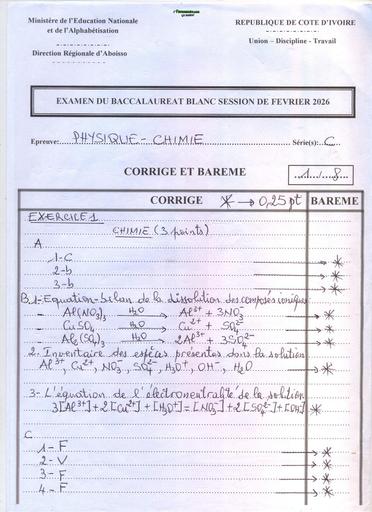 Ministère de l'Education Nationale
et de l'Alphabétisation
Direction Régionale d'Aboisso
REPUBLIQUE DE COTE D'IVOIRE
Union – Discipline - Travail
EXAMEN DU BACCALAUREAT BLANC SESSION DE FEVRIER 2026
Epreuve: PHYSIQUE - CHIMIE Série(s): C
CORRIGE ET BAREME
1/8
CORRIGE * → 0,25 pt BAREME
EXERCICE 1
CHIMIE (3 points)
A
1-C → *
2-b → *
3-b → *
B.1-Equation-bilan de la dissolution des composés ioniques
- Al(NO₃)₃ H₂O → Al³⁺ + 3NO₃⁻ → *
- CuSO₄ H₂O → Cu²⁺ + SO₄²⁻ → *
- Al₂(SO₄)₃ H₂O → 2Al³⁺ + 3SO₄²⁻ → *
2- Inventaire des espèces présentes dans la solution
Al³⁺, Cu²⁺, NO₃⁻, SO₄²⁻, H₃O⁺, OH⁻, H₂O → *
3- L'équation de l'électroneutralité de la solution
3[Al³⁺]+2[Cu²⁺]+[H₃O⁺]=[NO₃⁻]+2[SO₄²⁻]+[OH⁻] *
C
1-F → *
2-V → *
3-F → *
4-F → *